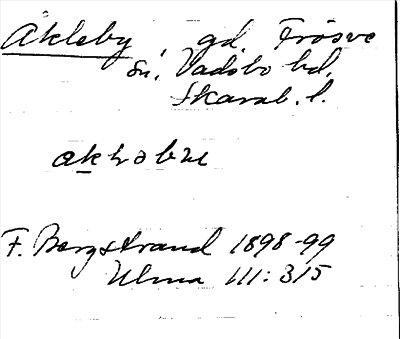 Åkleby, gd. Frösve
sn, Vadsbo hd,
Skarab. l.
F. Bergstrand 1898-99
Ulma 111:315